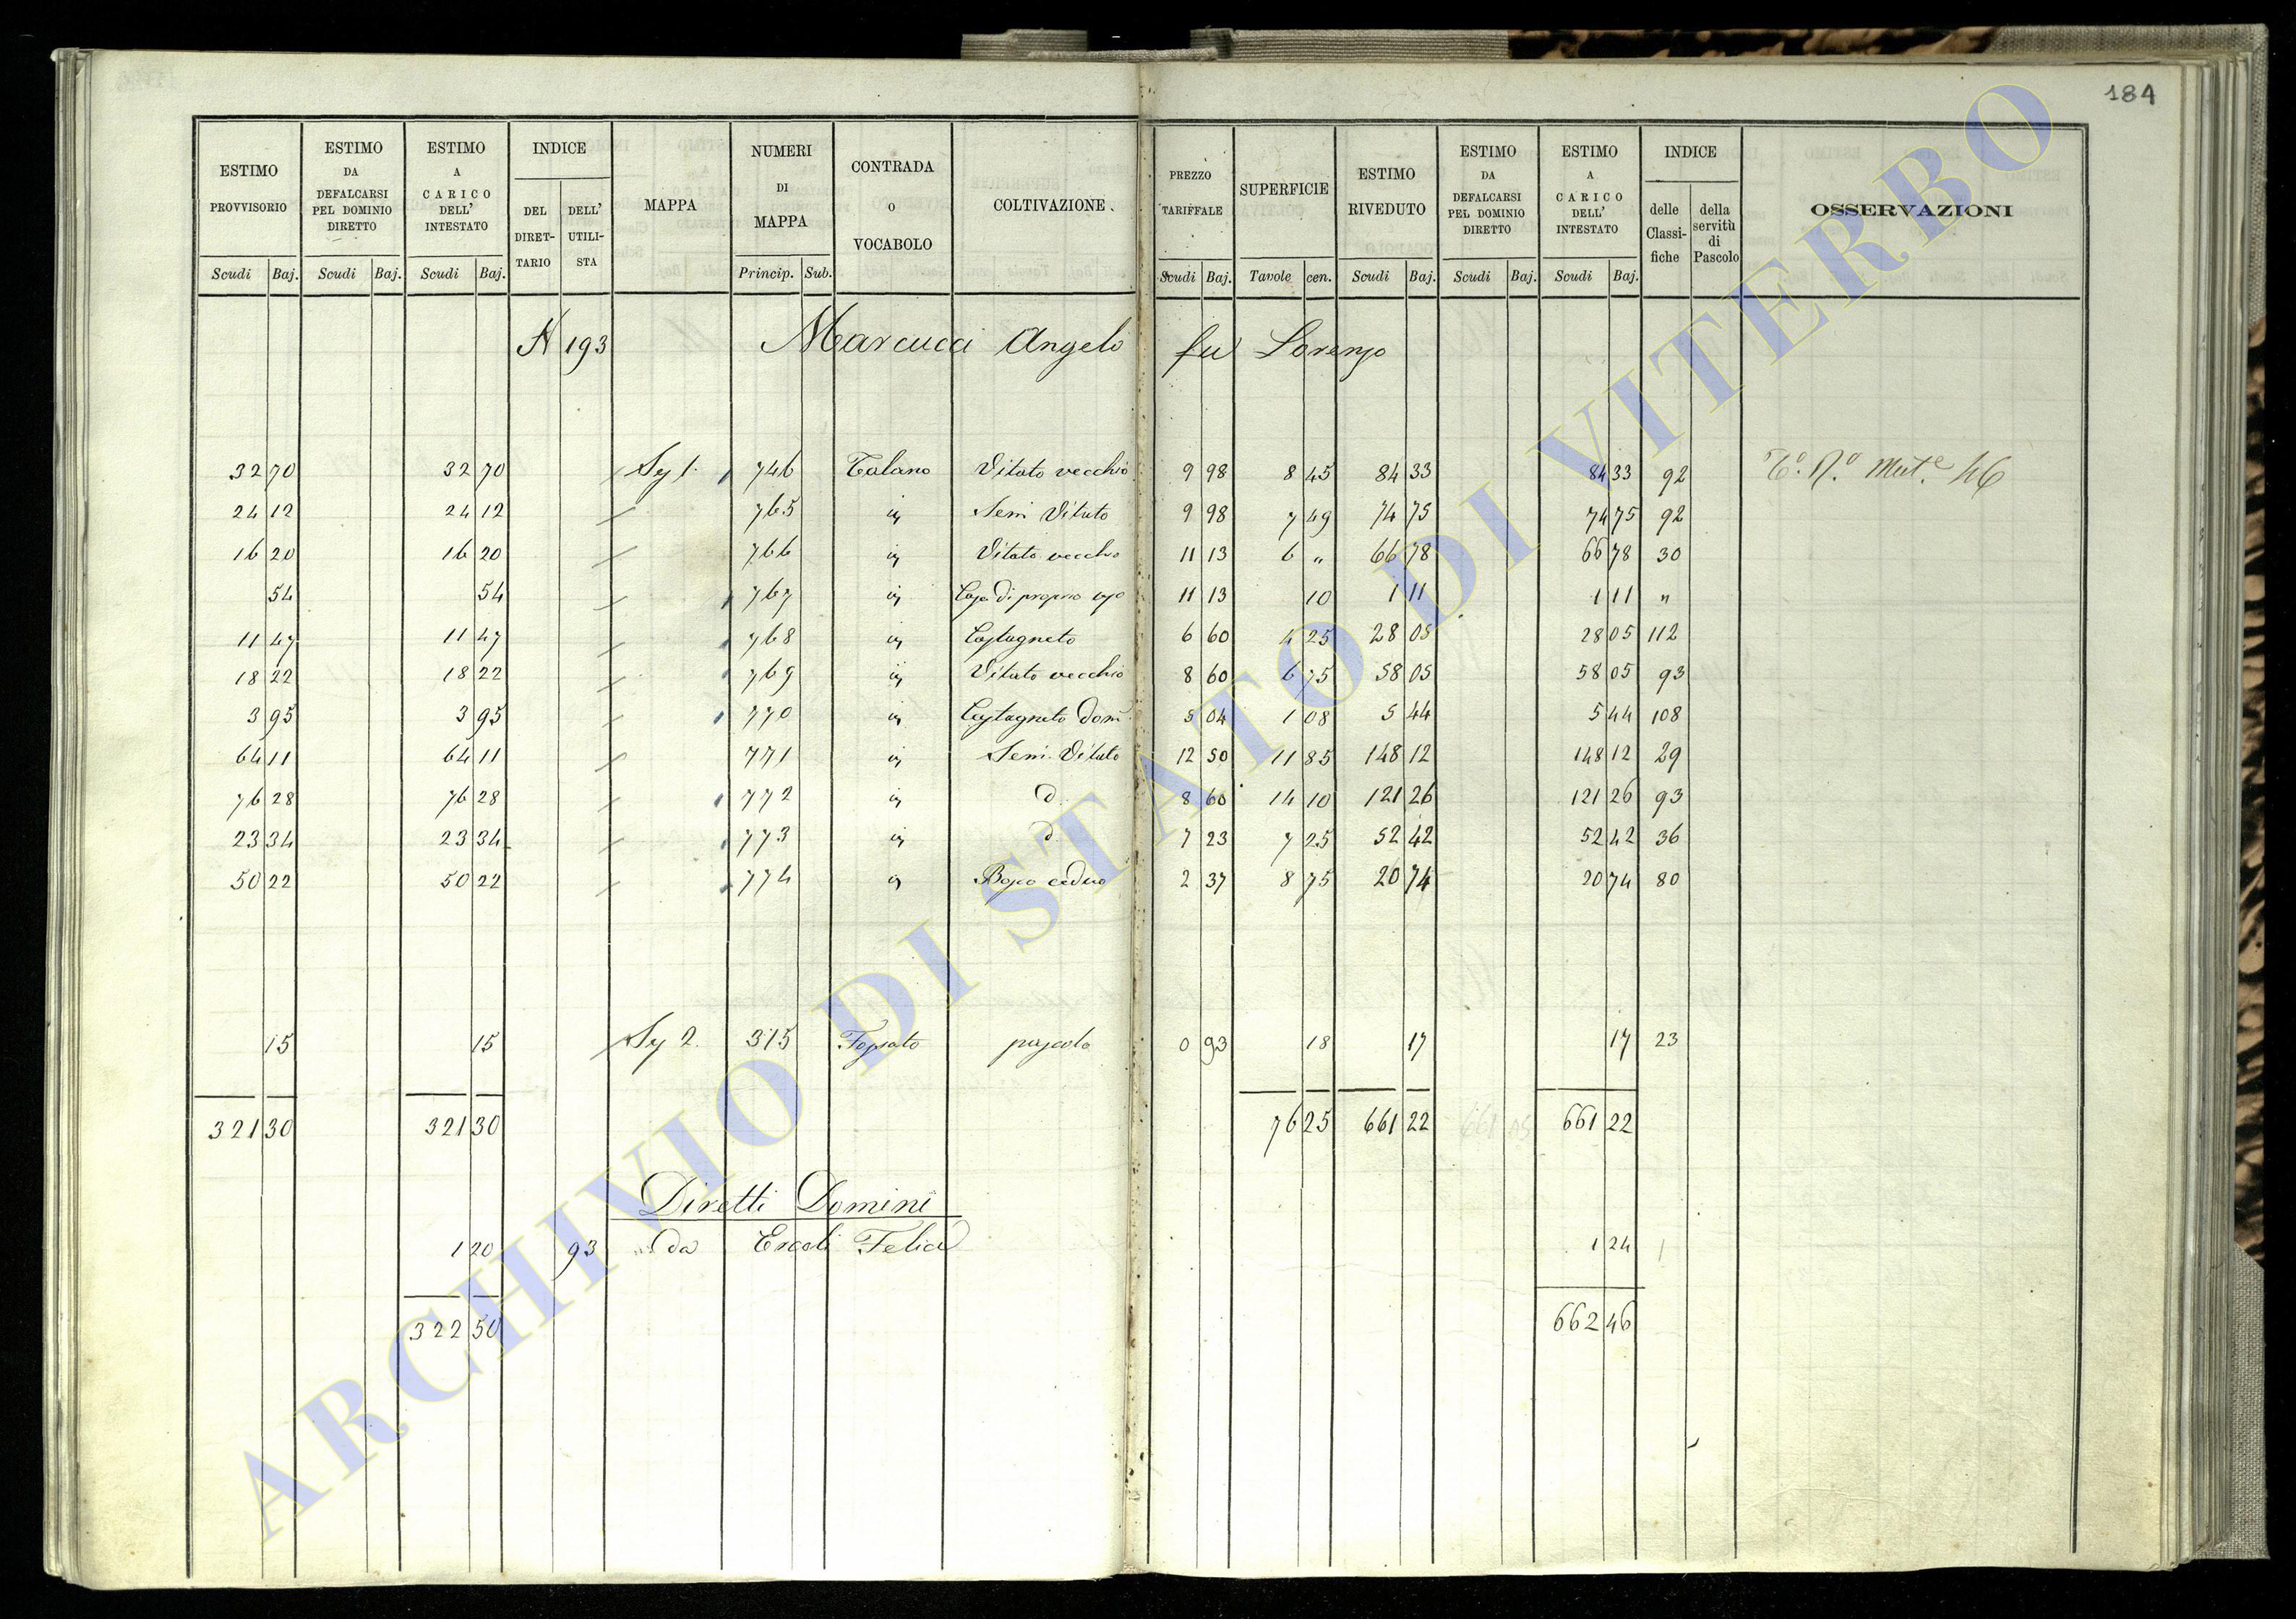 184
ESTIMO PROVVISORIO | ESTIMO DA DEFALCARSI PEL DOMINIO DIRETTO | ESTIMO A CARICO DELL' INTESTATO | INDICE | MAPPA | NUMERI DI MAPPA | CONTRADA O VOCABOLO | COLTIVAZIONE. | PREZZO TARIFFALE | SUPERFICIE | ESTIMO RIVEDUTO | ESTIMO DA DEFALCARSI PEL DOMINIO DIRETTO | ESTIMO A CARICO DELL' INTESTATO | INDICE | OSSERVAZIONI
DEL DIRET-TARIO | DELL' UTILI-STA | delle Classi-fiche | della servitù di Pascolo
Scudi | Baj. | Scudi | Baj. | Scudi | Baj. | Princip. | Sub. | Scudi | Baj. | Tavole | cen. | Scudi | Baj. | Scudi | Baj. | Scudi | Baj.
N 193 Marcucci Angelo fu Lorenzo
32 70 | 32 70 | Sez 1. | 746 | Talano | Vitato vecchio | 9 98 | 8 45 | 84 33 | 84 33 | 92 | Mut.e 46
24 12 | 24 12 | 765 | Sem Vitato | 9 98 | 7 49 | 74 75 | 74 75 | 92
16 20 | 16 20 | 766 | Vitato vecchio | 11 13 | 6 " | 66 78 | 66 78 | 30
54 | 54 | 767 | Casa di proprio uso | 11 13 | 10 | 1 11 | 1 11 | "
11 47 | 11 47 | 768 | Castagneto | 6 60 | 4 25 | 28 05 | 28 05 | 112
18 22 | 18 22 | 769 | Vitato vecchio | 8 60 | 6 75 | 58 05 | 58 05 | 93
3 95 | 3 95 | 770 | Castagneto dom | 5 04 | 1 08 | 5 44 | 5 44 | 108
64 11 | 64 11 | 771 | Sem. Vitato | 12 50 | 11 85 | 148 12 | 148 12 | 29
76 28 | 76 28 | 772 | d. | 8 60 | 14 10 | 121 26 | 121 26 | 93
23 34 | 23 34 | 773 | d. | 7 23 | 7 25 | 52 42 | 52 42 | 36
50 22 | 50 22 | 774 | Bosco ceduo | 2 37 | 8 75 | 20 74 | 20 74 | 80
15 | 15 | Sez 2. | 315 | Fossato | pascolo | 0 93 | 18 | 17 | 17 | 23
321 30 | 321 30 | 76 25 | 661 22 | 661 22
Diretti Domini
1 20 | 93 | da Ercoli Felice | 1 24
322 50 | 662 46
ARCHIVIO DI STATO DI VITERBO